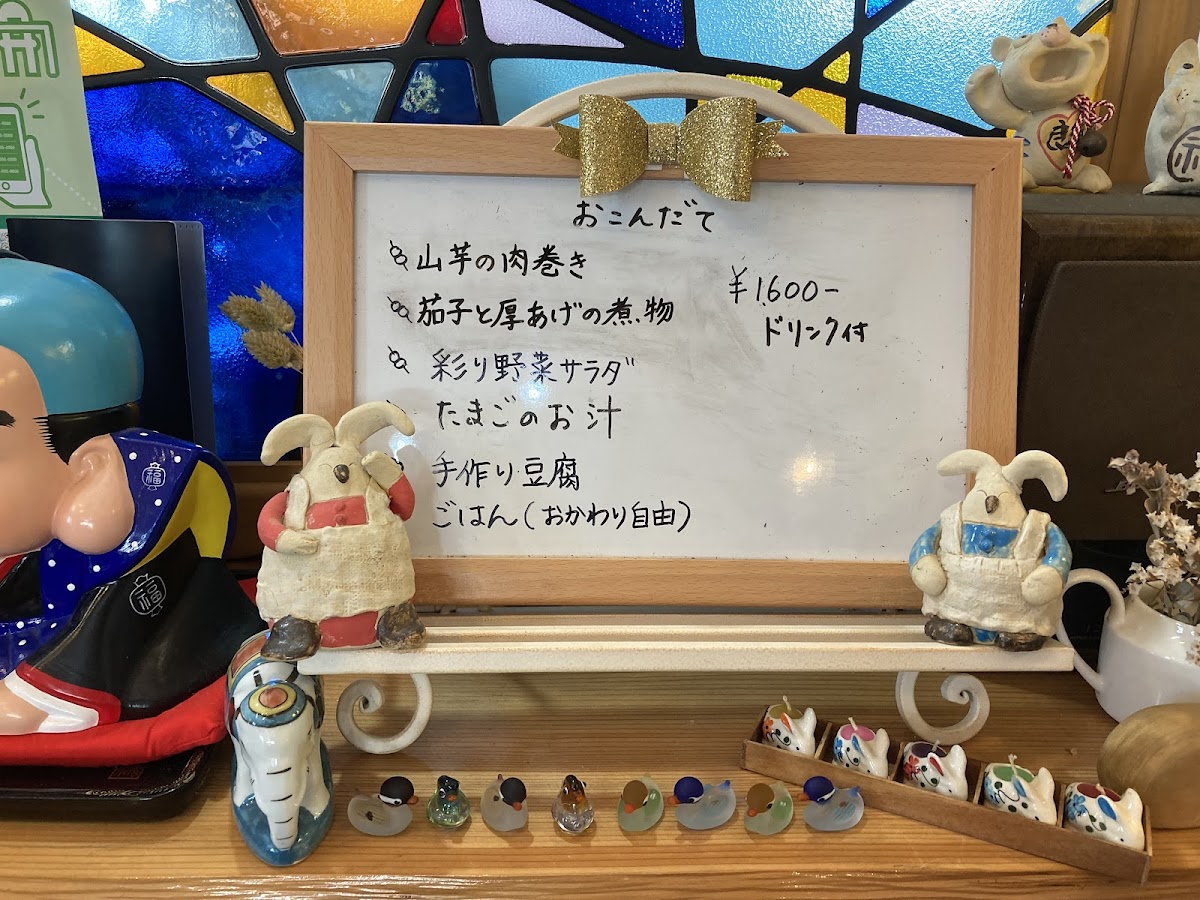 おこんだて
山芋の肉巻き
茄子と厚あげの煮物
彩り野菜サラダ
たまごのお汁
手作り豆腐
ごはん(おかわり自由)
¥1600-
ドリンク付
福
福
良
福